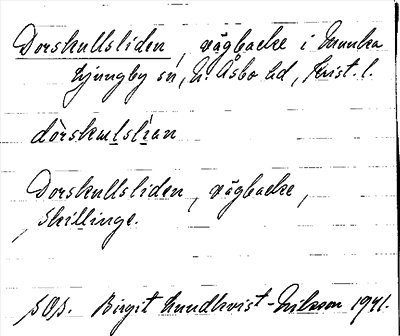 Dorskullsliden, vägbacke i Munka
Ljungby sn, N. Åsbo hd, Krist. l.
dòrskulslían
Dorskullsliden, vägbacke,
Skillinge.
Birgit Lundkvist-Nilsson 1941.